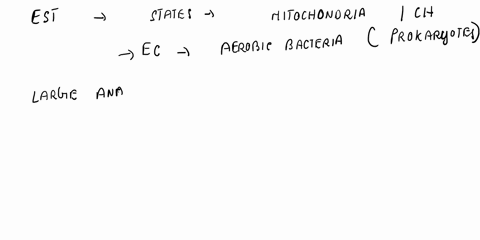 EST → STATES → MITOCHONDRIA / CH
→ EC → AEROBIC BACTERIA ( PROKARYOTES)
LARGE ANA